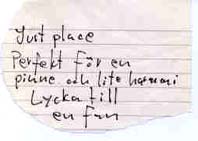 Just place
Perfekt för en
pinne och lite
Lycka till
en fan